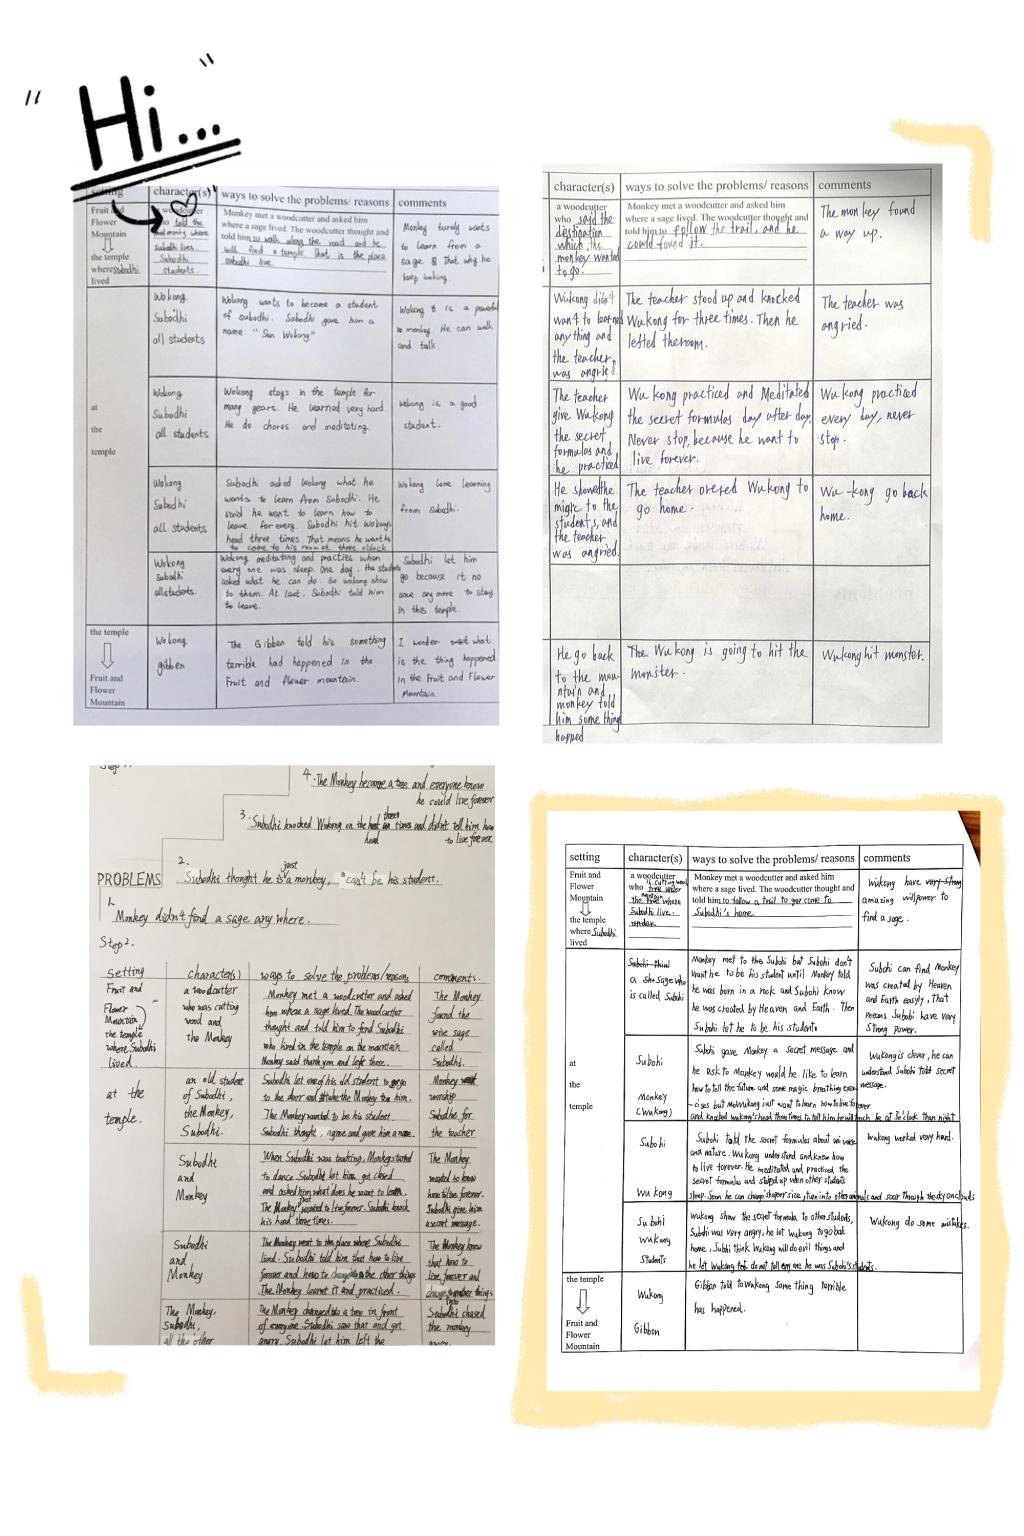 "Hi..."
setting
character(s)
ways to solve the problems/ reasons
comments
Fruit and
Flower
Mountain
the temple
where subodhi
lived
woodcutter
who told the
monkey where
subodhi lives.
Subodhi
students.
Monkey met a woodcutter and asked him
where a sage lived. The woodcutter thought and
told him to walk along the road and he
will find a temple That is the place
subodhi live.
Monkey wants
to learn from a
sage. That why he
keep looking.
at
the
temple
Wokong
Subodhi
all students
Wokong wants to become a student
of subodhi. Subodhi gave him a
name "Sun Wokong"
Wokong is a powerful
monkey. He can walk
and talk.
Wokong
Subodhi
all students
Wokong stays in the temple for
many years. He learned very hard
He do chores and meditating.
Wokong is a good
student.
Wokong
Subodhi
all students
Subodhi asked Wokong what he
wants to learn from Subodhi. He
said he want to learn how to
leave for every. Subodhi hit Wokong
head three times. That means he want he
to come to his room at three
Wokong love learning
from subodhi.
Wokong
Subodhi
all students.
Wokong meditating and practies when
every one was sleep. One day, the students
asked what he can do. So wokong show
to them. At last. Subodhi told him
to leave.
Subodhi let him
go because it no
any more to stay
in this temple.
the temple
Fruit and
Flower
Mountain
Wokong
gibben
The Gibben told his something
terrible had happened in the
Fruit and flower mountain.
I wonder what
is the thing happened
in the Fruit and Flower
Mountain.
character(s)
ways to solve the problems/ reasons
comments
a woodcutter
who said the
destination
which the
monkey wanted
to go.
Monkey met a woodcutter and asked him
where a sage lived. The woodcutter thought and
told him to follow the trail, and he
could found it.
The monkey found
a way up.
Wukong didn't
want to learned
anything and
the teacher
was angried.
The teacher stood up and knocked
Wukong for three times. Then he
lefted the room.
The teacher was
angried.
The teacher
give Wukong
the secret
formulas and
he practiced
Wukong practiced and Meditated
the secret formulas day after day.
Never stop, because he want to
live forever.
Wukong practiced
every day, never
stop.
He showed the
migic to the
students, and
the teacher
was angried.
The teacher orered Wukong to
go home.
Wu-kong go back
home.
He go back
to the mou-
ntain and
monkey told
him some thing
happed
The Wukong is going to hit the
monster.
Wukong hit monster.
4. The Monkey become a tree and everyone know
he could live forever
3. Subodhi knocked Wukong on the head three times and didn't tell him how
to live forever.
2.
PROBLEMS
Subodhi thought he is just a monkey, can't be his student.
1.
Monkey didn't find a sage any where.
Step 2.
setting
character(s)
ways to solve the problems/reasons
comments.
Fruit and
Flower
Mountain
the temple
where Subodhi
lived.
a woodcutter
who was cutting
wood and
the Monkey
Monkey met a woodcutter and asked
him where a sage lived. The woodcutter
thought and told him to find Subodhi
who lived in the temple on the mountain
Monkey said thankyou and left there.
The Monkey
found the
wise sage
called
Subodhi.
at the
temple.
an old student
of Subodhi,
the Monkey,
Subodhi.
Subodhi let one of his old student to go
to the door and take the Monkey to him.
The Monkey wanted to be his student
Subodhi thought, agree and gave him a name.
Monkey
worship
Subodhi for
the teacher
Subodhi
and
Monkey
When Subodhi was teaching, Monkey started
to dance. Subodhi let him got closed
and asked him what does he want to learn.
The Monkey just wanted to live forever. Subodhi knock
his head three times.
The Monkey
wanted to know
how to live forever.
Subodhi give him
a secret message.
Subodhi
and
Monkey
The Monkey went to the place where Subodhi
lived. Subodhi told him that how to live
forever and how to change into the other things
The Monkey learnt it and practiced.
The Monkey knew
that how to
live forever and
change into other things
The Monkey,
Subodhi,
all the other
The Monkey changed into a tree in front
of everyone. Subodhi saw that and got
angry. Subodhi let him left the
Subodhi chased
the monkey
away.
setting
character(s)
ways to solve the problems/ reasons
comments
Fruit and
Flower
Mountain
the temple
where Subodhi
lived
a woodcutter
who is cutting wood
Subodhi live.
Monkey met a woodcutter and asked him
where a sage lived. The woodcutter thought and
told him to follow a trail to come to
Subodhi's home.
Wukong have very strong
amazing willpower to
find a sage.
a sage who
is called Subohi
Monkey met to the Subohi but Subohi don't
want he to be his student until Monkey told
he was born in a rock and Subohi know
he was created by Heaven and Earth. Then
Subohi let he to be his students
Subohi can find Monkey
was created by Heaven
and Earth easyly, that
means Subohi have very
strong power.
at
the
temple
Subohi
Monkey
(Wukong)
Subohi gave Monkey a secret message and
he ask to Monkey would he like to learn
how to tell the future and some magic breathing exer-
cises but Wukong just want to learn how to live forever
and knocked wukong's head three times to tell him he will teach he at 3o'clock that night
Wukong is clever, he can
understand Subohi told secret
message.
Subohi
Wukong
Subohi told the secret formulas about universe
and nature. Wukong understand and know how
to live forever. He meditated and practiced the
secret formulas and stayed up when other students
sleep. Soon he can change shape or size, turn into other animals and soar through the sky on clouds
wukong worked very hard.
Subohi
wukong
students
wukong show the secret formula to other students,
Subohi was very angry, he let wukong to go back
home, Subohi think Wukong will do evil things and
he let Wukong do not tell he was Subohi's students.
Wukong do some mistakes.
the temple
Fruit and
Flower
Mountain
Wukong
Gibbon
Gibbon told to Wukong some thing terrible
has happened.